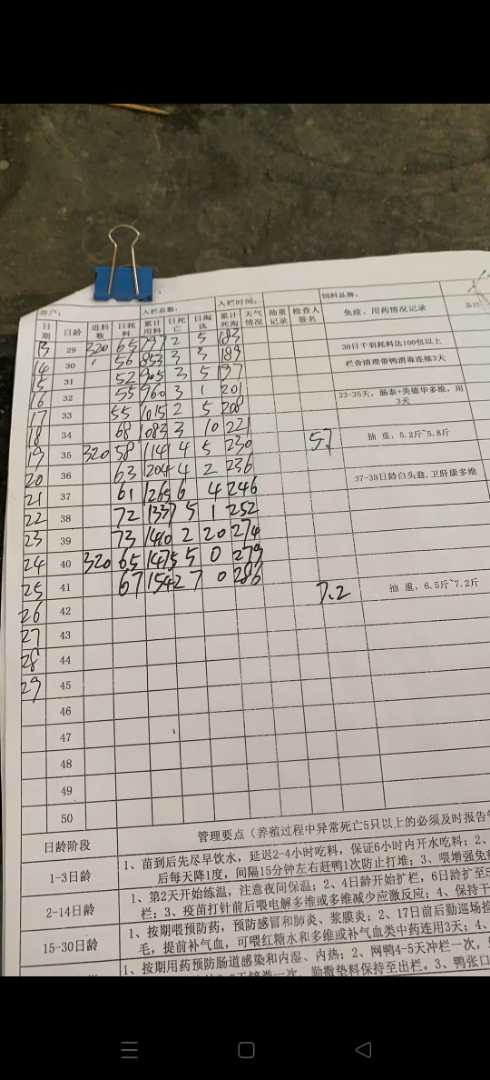 客户: 入栏总数: 入栏时间: 饲料品牌:
日期 日龄 进料数 日耗料 累计用料 日死亡 日淘汰 累计死淘 天气情况 抽重记录 检查人签名 免疫、用药情况记录
13 29 320 65 797 2 5 183
14 30 56 853 3 3 189 30日千羽耗料达100包以上
15 31 52 905 3 5 197 栏舍清理带鸭消毒连续3天
16 32 55 960 3 1 201
17 33 55 1015 2 5 208 33-35天,肠泰+美能华多维,用3天
18 34 68 1083 3 10 221
19 35 320 58 1141 4 5 230 5.7 抽 重,5.2斤~5.8斤
20 36 63 1204 4 2 236
21 37 61 1265 6 4 246 37-39日龄白头翁,卫肝康多维
22 38 72 1337 5 1 252
23 39 73 1410 2 20 274
24 40 320 65 1475 5 0 279
25 41 67 1542 7 0 286 7.2 抽 重,6.5斤~7.2斤
26 42
27 43
28 44
29 45
46
47
48
49
50
日龄阶段 管理要点(养殖过程中异常死亡5只以上的必须及时报告
1-3日龄 1、苗到后先尽早饮水,延迟2-4小时吃料,保证6小时内开水吃料;2、
后每天降1度,间隔15分钟左右赶鸭1次防止打堆;3、喂增强免
2-14日龄 1、第2天开始练温,注意夜间保温;2、4日龄开始扩栏,6日龄扩至
栏;3、疫苗打针前后喂电解多维或多维减少应激反应;4、保持干
15-30日龄 1、按期喂预防药,预防感冒和肺炎、浆膜炎;2、17日前后勤巡场
毛,提前补气血,可喂红糖水和多维或补气血类中药连用3天;4、
1、按期用药预防肠道感染和内湿、内热;2、网鸭4-5天冲栏一次,
一次,勤撒垫料保持至出栏。3、鸭张口